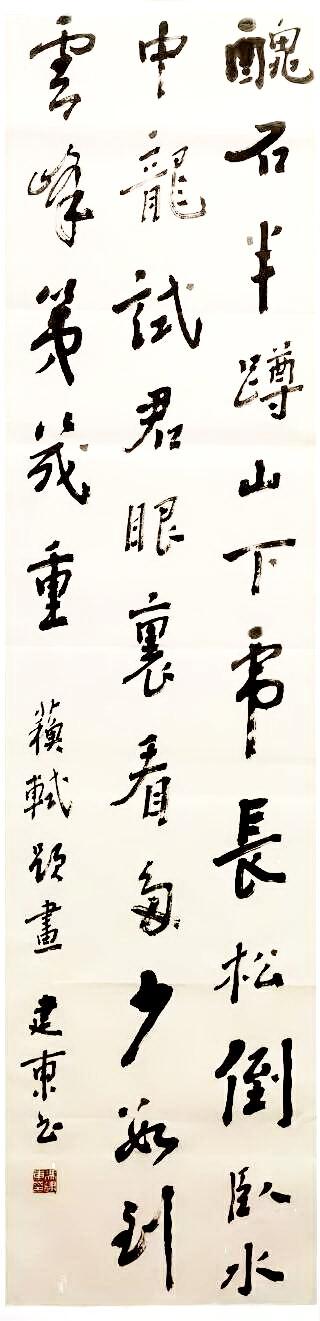 醜石半蹲山下虎長松倒臥水
中龍試君眼裏看多少數到
雲峰第幾重
蘓軾題畫 建東書